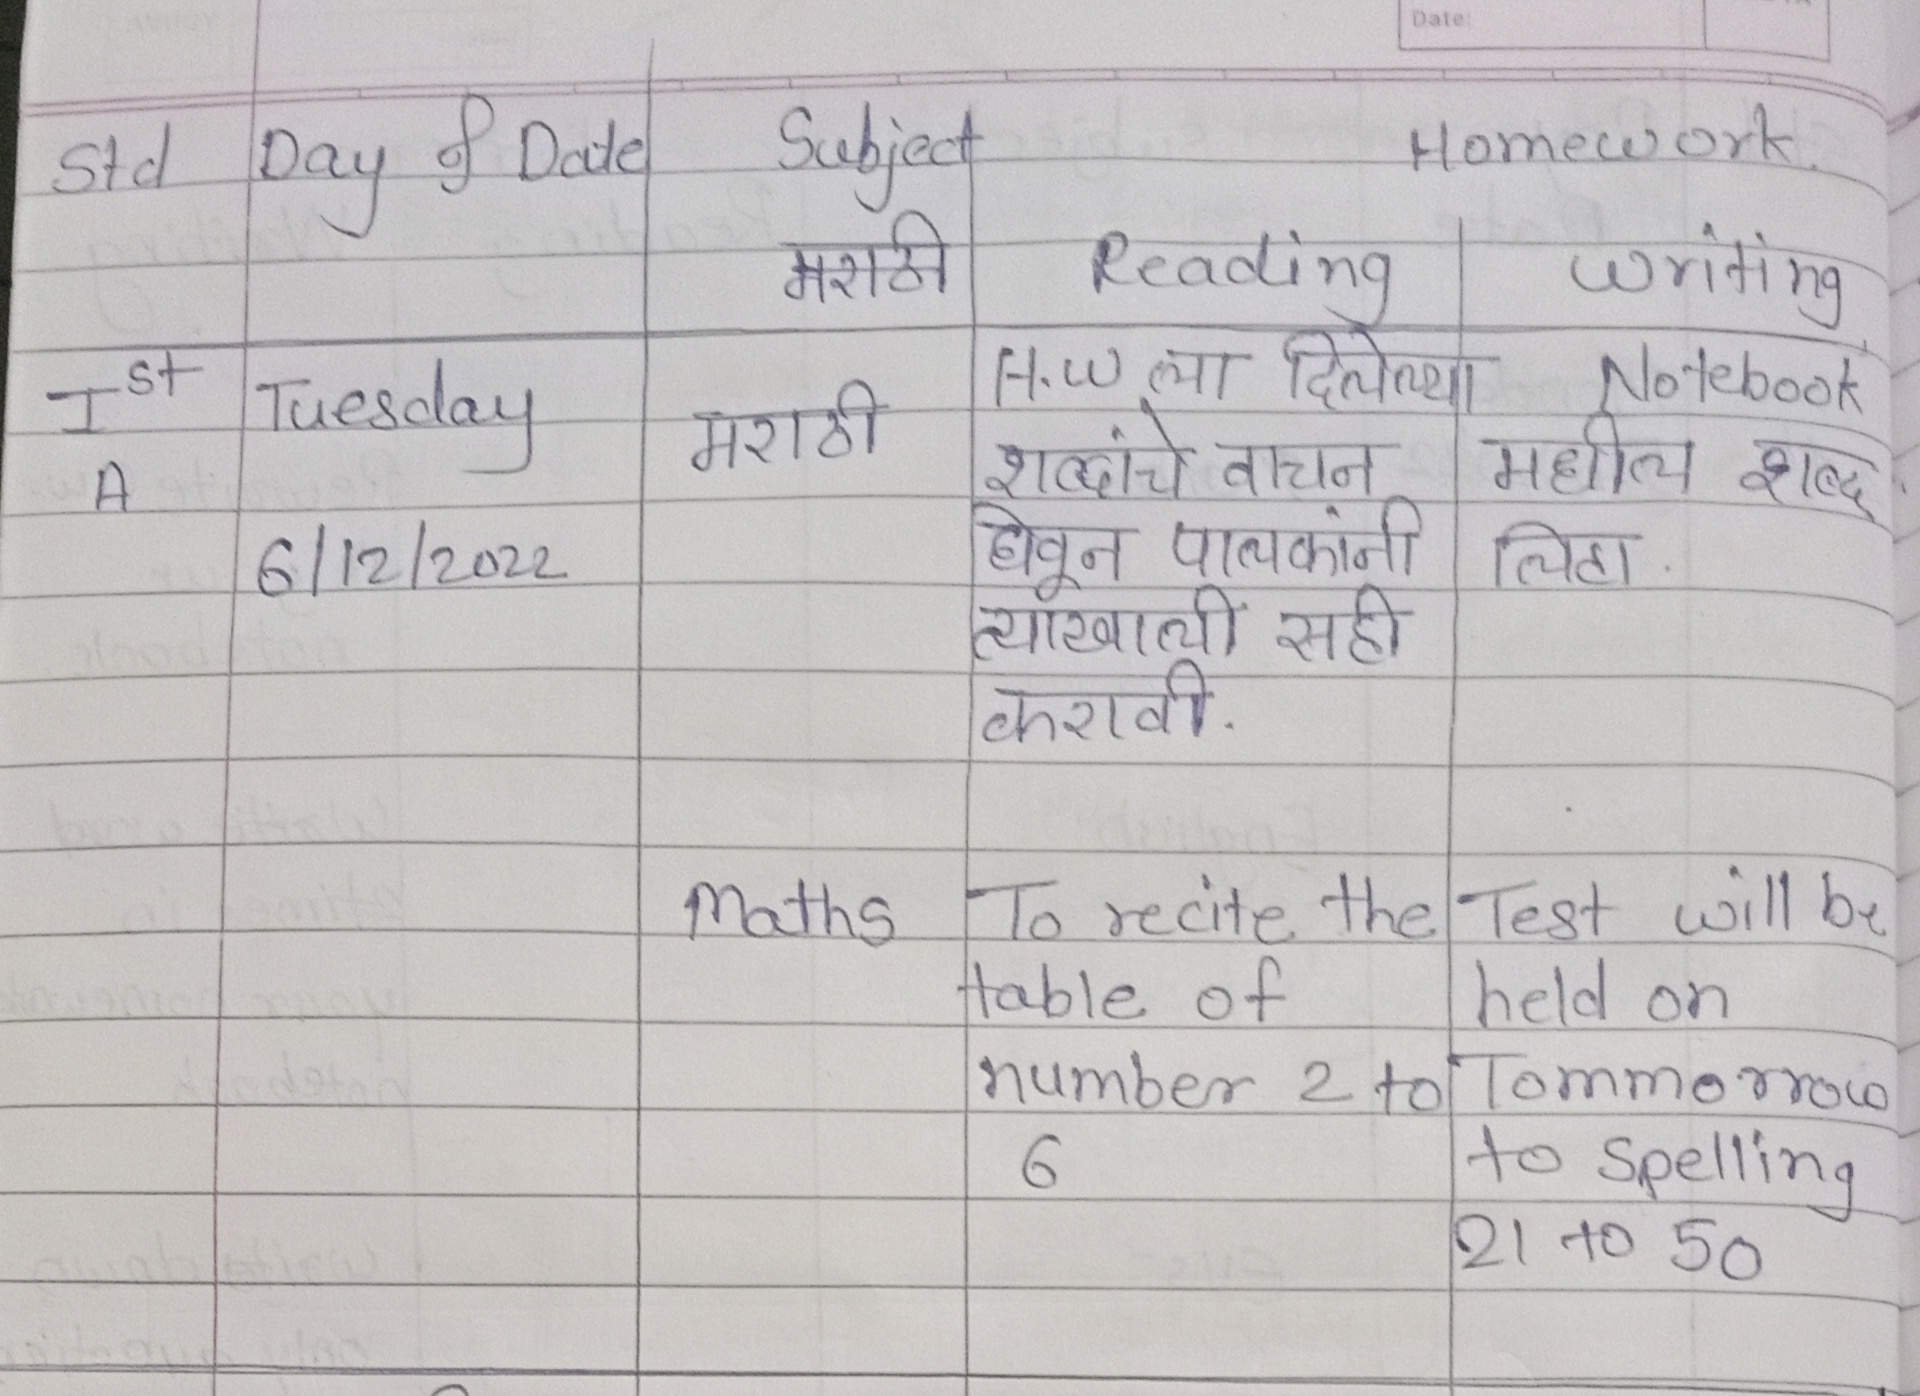 Date:
Std Day of Date Subject Homework.
मराठी Reading Writing
Ist Tuesday मराठी H.W ला दिलेल्या Notebook
A शब्दांचे वाचन मधील शब्द
6/12/2022 घेवून पालकांनी लिहा.
त्याखाली सही
करावी.
Maths To recite the Test will be
table of held on
number 2 to Tommorrow
6 to spelling
21 to 50